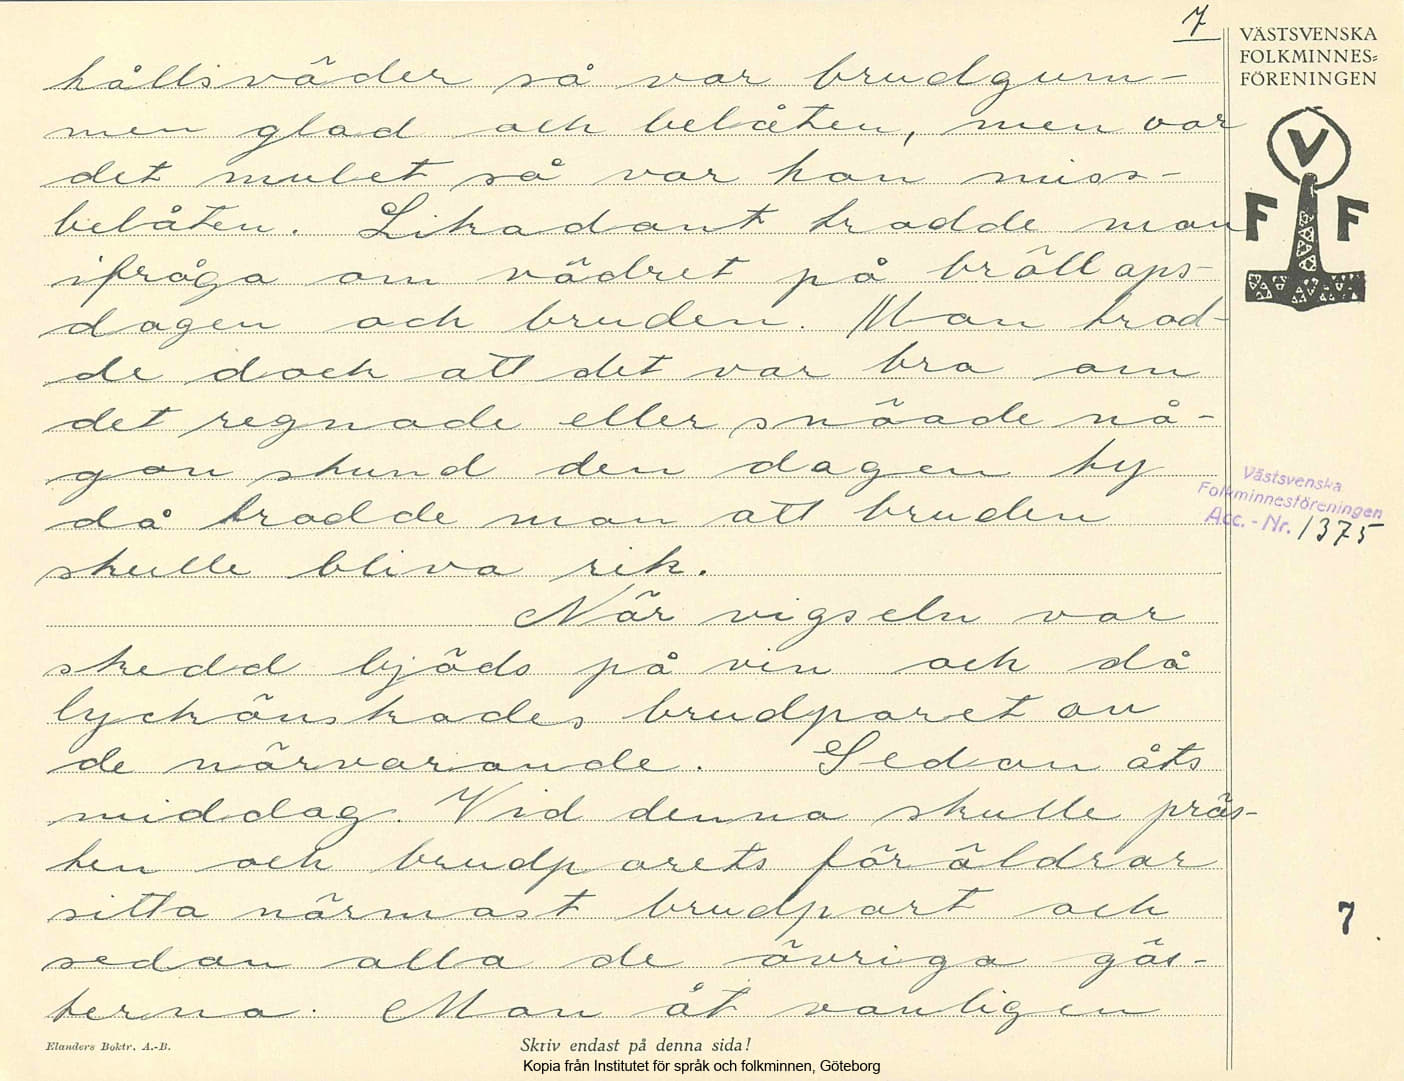 7
VÄSTSVENSKA
FOLKMINNES=
FÖRENINGEN
V
F F
hållsväder så var brudgum-
men glad och belåten, men var
det mulet så var han miss-
belåten. Likadant trodde man
ifråga om vädret på bröllops-
dagen och bruden. Man trod-
de doch att det var bra om
det regnade eller snöade nå-
gon stund den dagen ty
då trodde man att bruden
skulle bliva rik.
Västsvenska
Folkminnesföreningen
Acc. - Nr. 1375
När vigseln var
skedd bjöds på vin och då
lyckönskades brudparet av
de närvarande. Sedan åts
middag. Vid denna skulle präs-
ten och brudparets föräldrar
sitta närmast brudpart och
sedan alla de övriga gäs-
terna. Man åt vanligen
7
Elanders Boktr. A.-B.
Skriv endast på denna sida!
Kopia från Institutet för språk och folkminnen, Göteborg